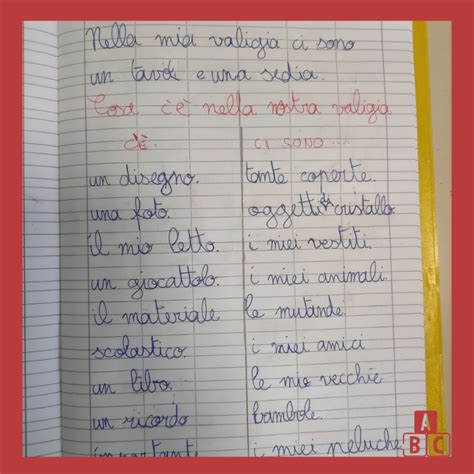 Nella mia valigia ci sono
un tavolo e una sedia.
Cosa c'è nella nostra valigia
C'È. CI SONO...
un disegno. tante coperte.
una foto. oggetti di cristallo.
il mio letto. i miei vestiti.
un giocattolo. i miei animali.
il materiale le mutande.
scolastico. i miei amici
un libro. le mie vecchie
un ricordo bambole.
importante i miei peluche
A
B C